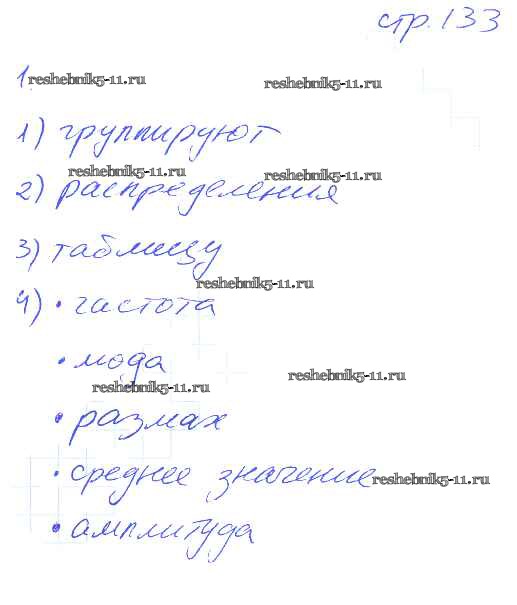 стр. 133
1. reshebnik5-11.ru reshebnik5-11.ru
1) группируют
reshebnik5-11.ru reshebnik5-11.ru
2) распределения
3) таблицу
reshebnik5-11.ru
4) • частота
• мода
reshebnik5-11.ru reshebnik5-11.ru
• размах
• среднее значение reshebnik5-11.ru
• амплитуда